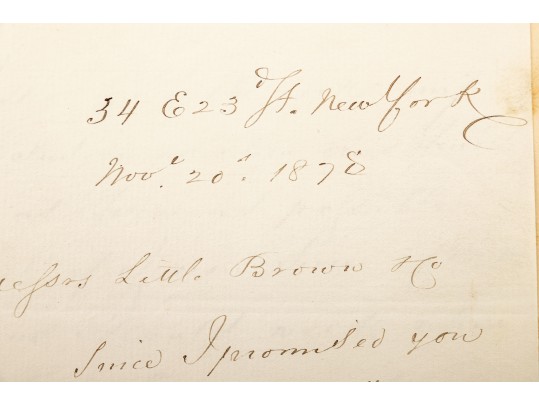 34 E 23d St. New York
Nov.r 20th. 1878
Messrs Little Brown & Co
Since I promised you